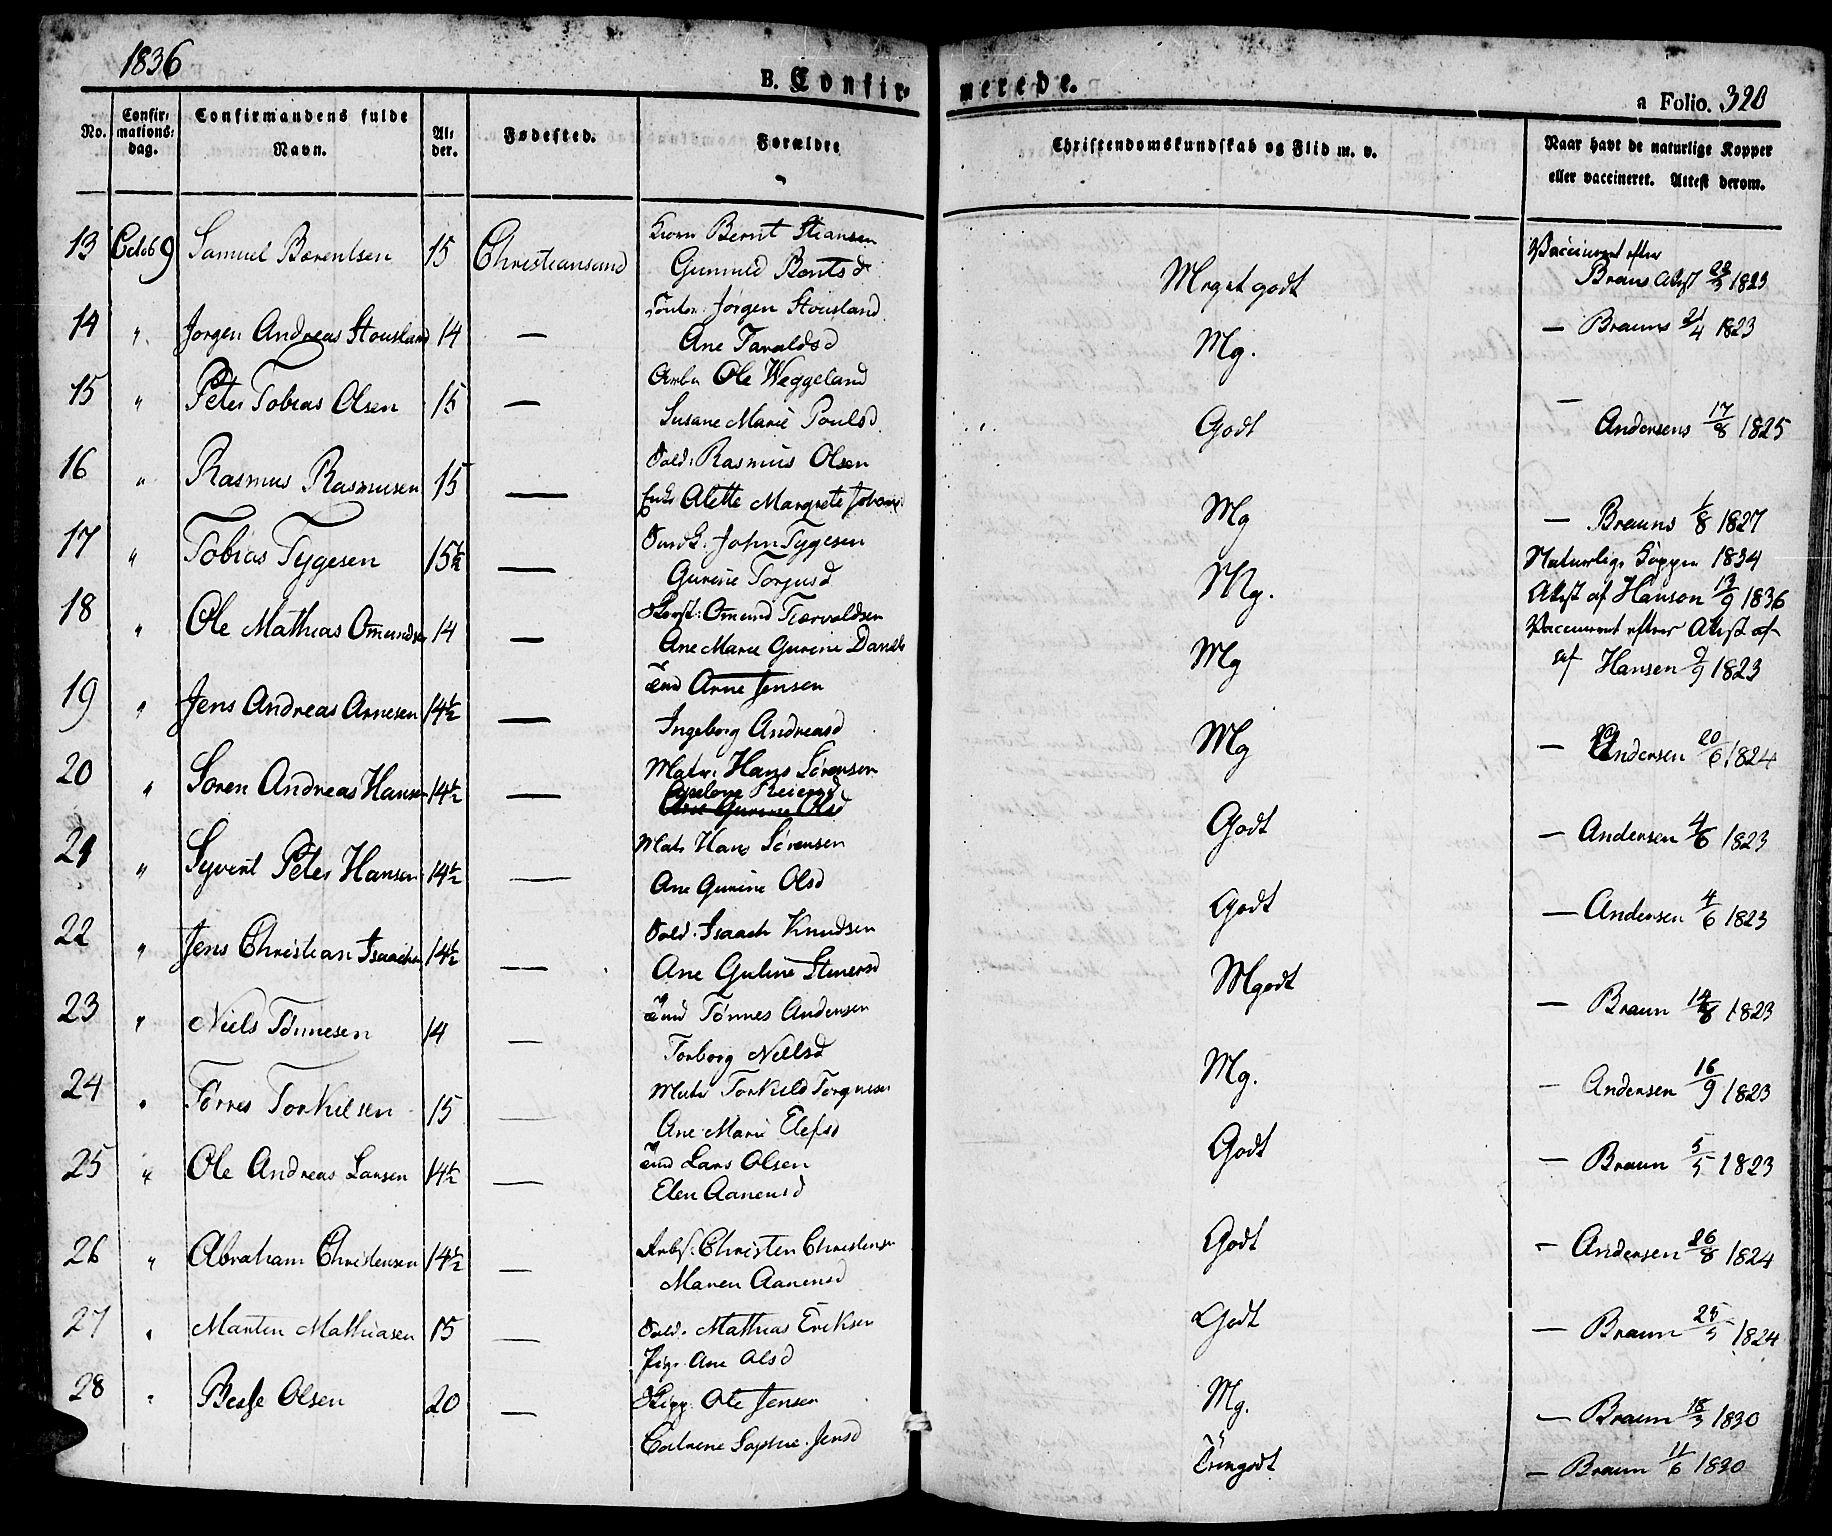 1836
B. Confirmerede.
a Folio. 320
No. Confirmations-dag. Confirmandens fulde Navn. Alder. Fødested. Forældre Christendomskundskab og Flid m. v. Naar havt de naturlige Kopper eller vaccineret. Attest derom.
13 Octob 9 Samuel Bærentsen 15 Christiansand Bernt Stiansen Meget godt Vaccineret efter
Gunnild Berntsd Brauns Attest 1823
14 " Jørgen Andreas Stousland 14 — Jørgen Stousland Mg. — Brauns 21/4 1823
Ane Taraldsd
15 " Peter Tobias Olsen 15 — Arbr Ole Weggeland Godt — Andersens 17/8 1825
Susane Marie Poulsd
16 " Rasmus Rasmusen 15 — Sold: Rasmus Olsen Mg — Brauns 1/8 1827
Enke Alette Margrete
17 " Tobias Tygesen 15½ — John Tygesen Mg. Naturlige Kopper 1834
Gurine Torjusd Attest af Hanson 12/9 1836
18 " Ole Mathias Omundsen 14 — Omund Tærvaldsen Mg Vaccineret efter Attest af
Ane Marie Gurine Danielsd af Hansen 9/9 1823
19 " Jens Andreas Arnesen 14½ — Arne Jensen Mg — Andersen 20/6 1824
Ingeborg Andreasd
20 " Søren Andreas Hansen 14½ — Matr: Hans Sørensen Godt — Andersen 4/6 1823
Reiersd
Ane Gurine Olsd
21 " Syvert Peter Hansen 14½ — Matr Hans Sørensen Godt — Andersen 4/6 1823
Ane Gurine Olsd
22 " Jens Christian Isaachsen 14½ — Sold. Isaach Knudsen Mgodt — Braun 14/8 1823
Ane Guline Stenersd
23 " Niels Tønnesen 14 — Tønnes Andersen Mg. — Andersen 16/9 1823
Torborg Nielsd
24 " Tørres Torkilsen 15 — Matr Torkield Torgusen Godt — Braun 5/5 1823
Ane Marie Elefsd
25 " Ole Andreas Larsen 14½ — Lars Olsen Godt — Andersen 26/8 1824
Elen Aanensd
26 " Abraham Christensen 14½ — Arbf. Christen Christensen Godt — Braun 25/5 1824
Maren Aanensd
27 " Marten Mathiasen 15 — Sold. Mathias Eriksen Mg. — Braun 18/3 1830
Pig. Ane Olsd
28 " Olsen 20 — Skipp. Ole Jensen — Braun 11/6 1830
Catrine Sophie Jensd